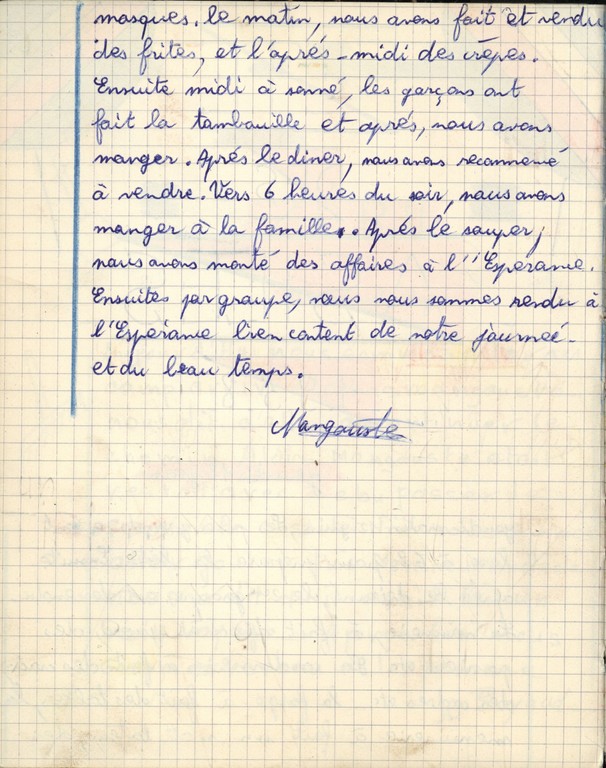 masques. le matin, nous avons fait et vendu
des frites, et l'aprés-midi des crêpes.
Ensuite midi à sonné, les garçons ont
fait la tambouille et aprés, nous avons
manger. Aprés le diner, nous avons recommencé
à vendre. Vers 6 heures du soir, nous avons
manger à la famille. Aprés le souper,
nous avons monté des affaires à l'"Espérance.
Ensuites par groupe, nous nous sommes rendu à
l'Espérance bien content de notre journeé
et du beau temps.
Mangouste